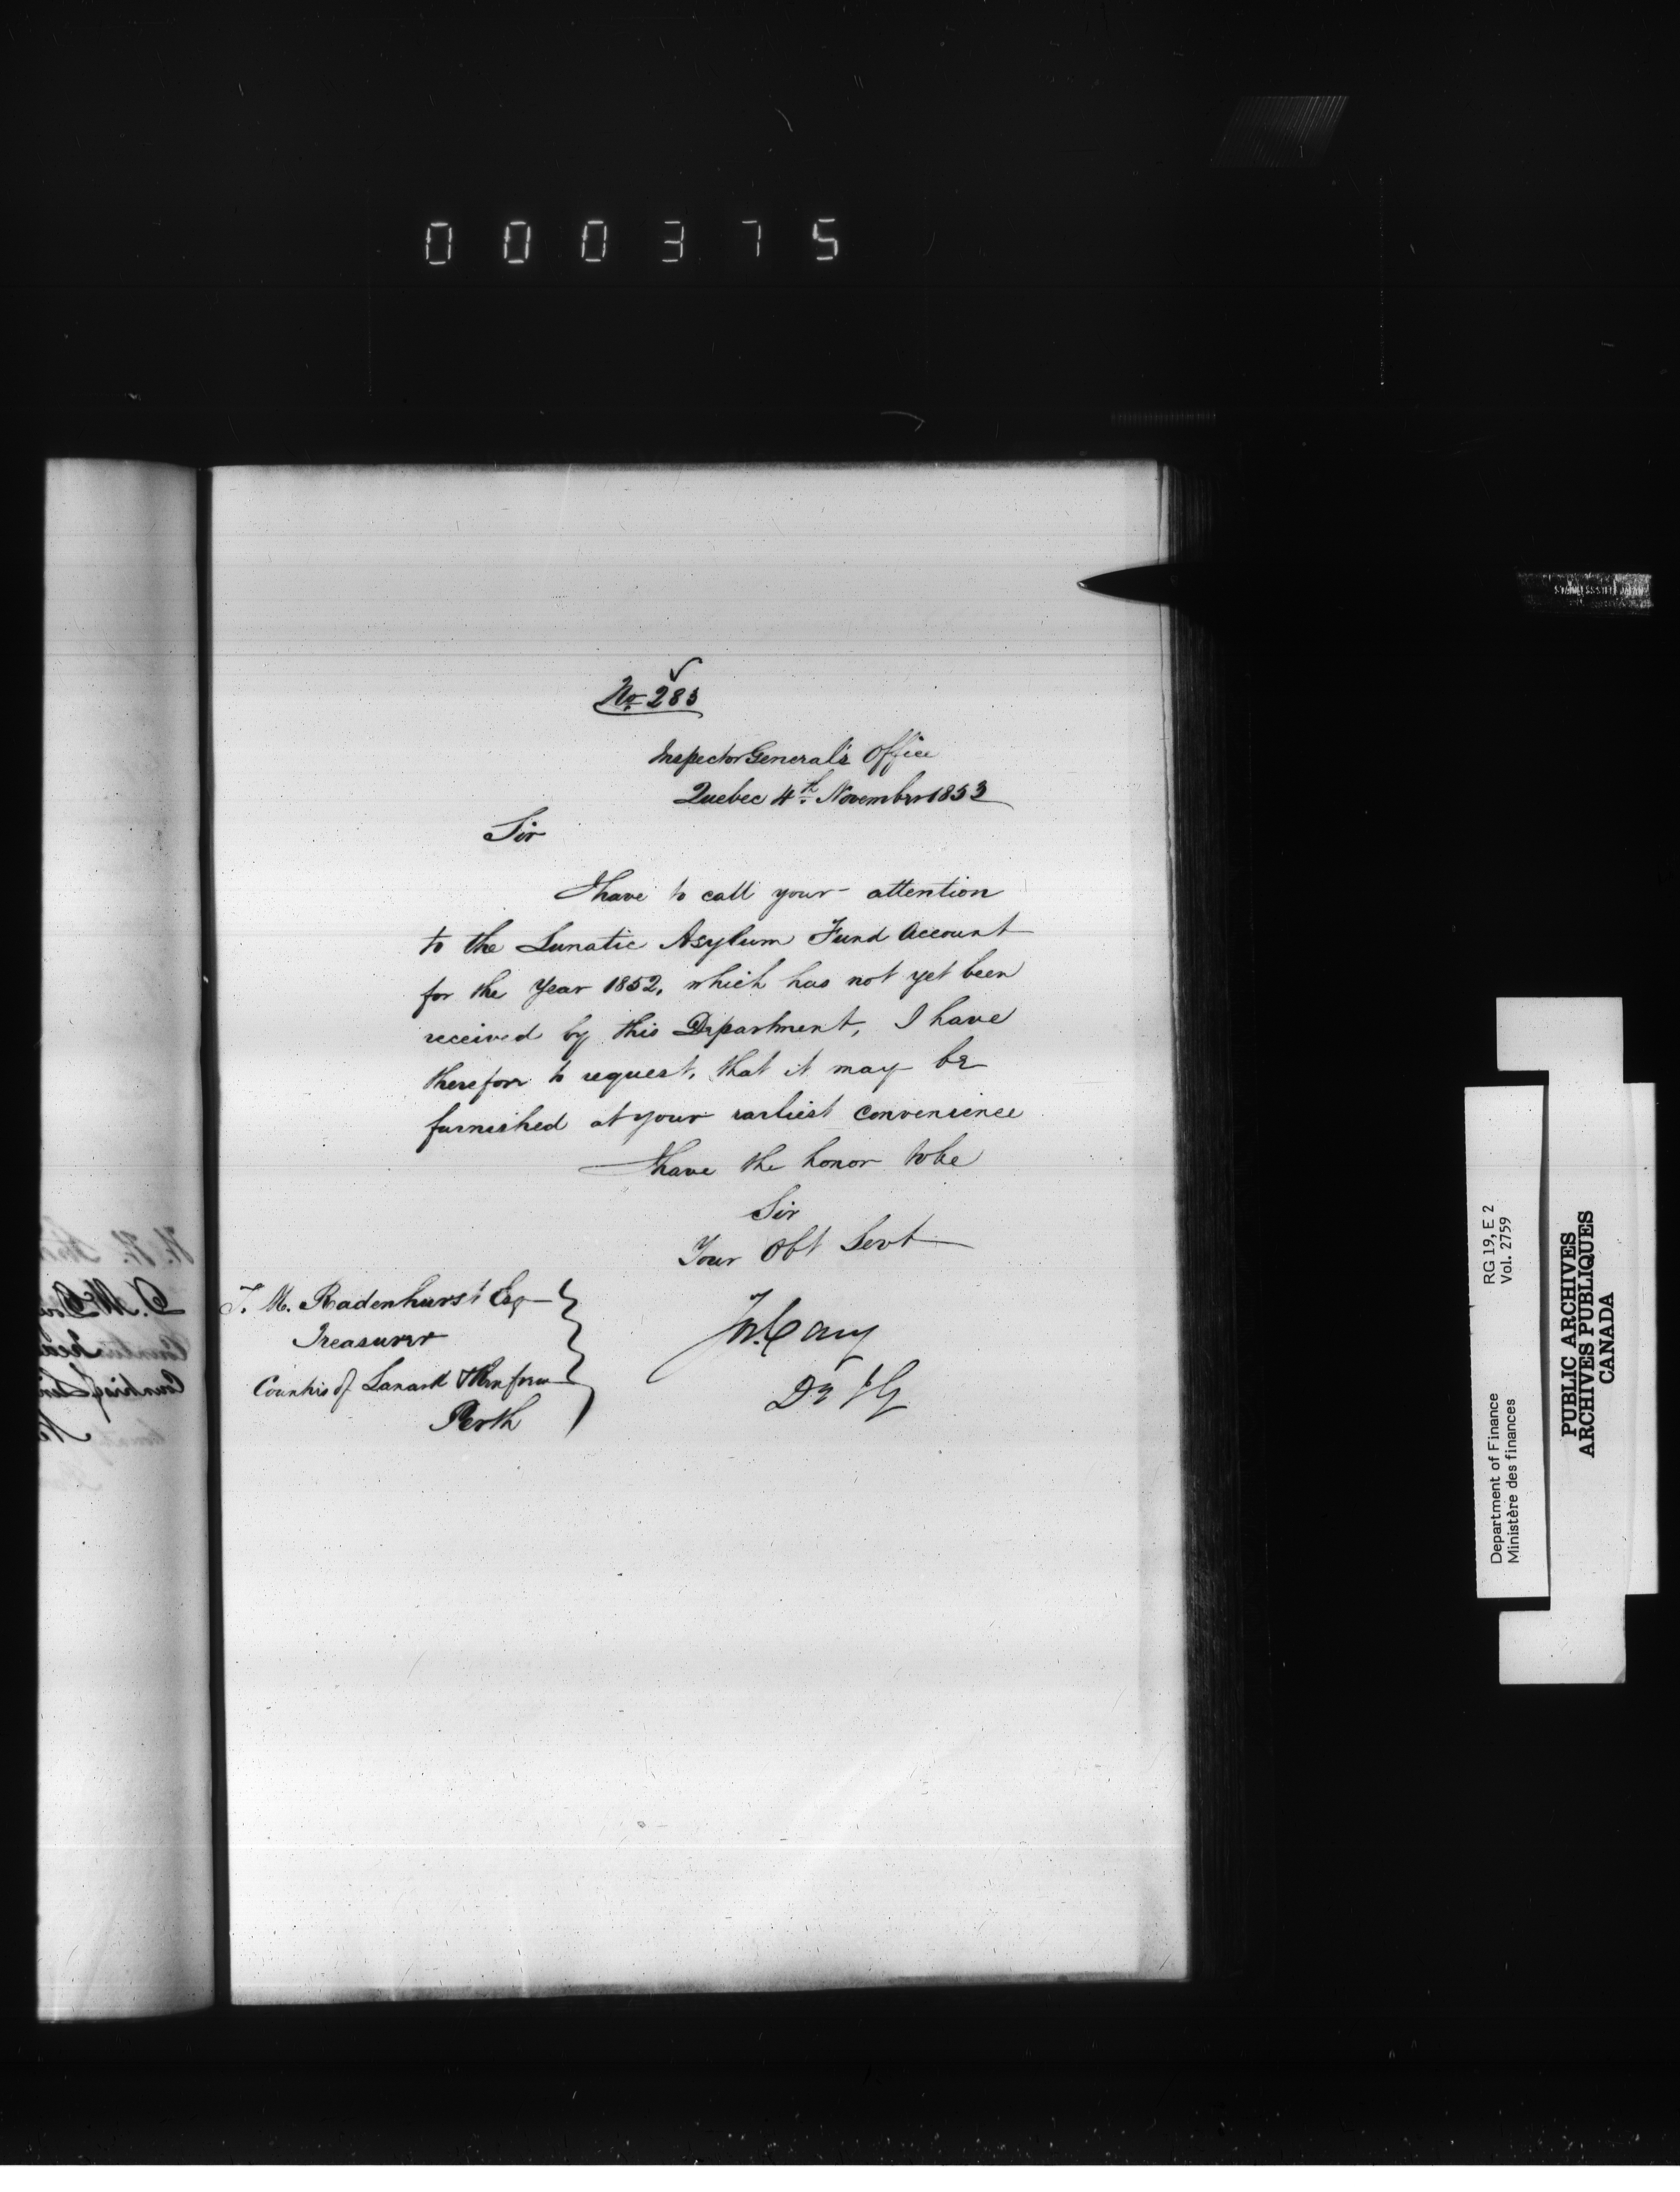 000375
No. 283
Inspector General's Office
Quebec 4th November 1853
Sir
I have to call your attention
to the Lunatic Asylum Fund Account
for the Year 1852, which has not yet been
received by this Department, I have
therefore to request, that it may be
furnished at your earliest convenience
I have the honor to be
Sir
Your Obt Servt
T. M. Radenhurst Esq
Treasurer
Counties of Lanark & Renfrew
Perth
Jos. Cary
D I G
STAINLESS STEEL JAPAN
RG 19, E 2
Vol. 2759
Department of Finance
Ministère des finances
PUBLIC ARCHIVES
ARCHIVES PUBLIQUES
CANADA